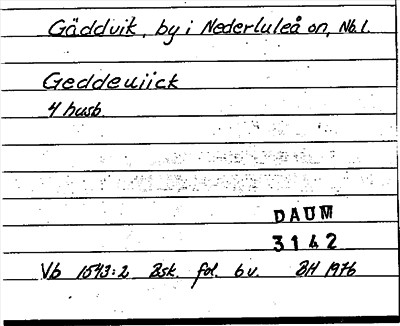 Gäddvik, by i Nederluleå sn, Nb.l.
Geddeuiick
4 husb.
DAUM
3142
Vb 1543:2 Bsk. fol. 6v. BH 1976